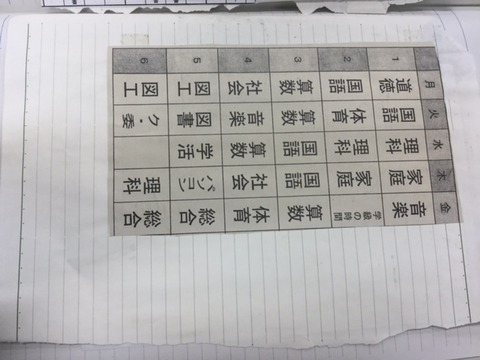 月 火 水 木 金
1 道徳 国語 理科 家庭 音楽
2 国語 体育 理科 家庭 学級の時間
3 算数 算数 国語 国語 算数
4 社会 音楽 算数 社会 体育
5 図工 図書 学活 パソコン 総合
6 図工 ク・委 理科 総合